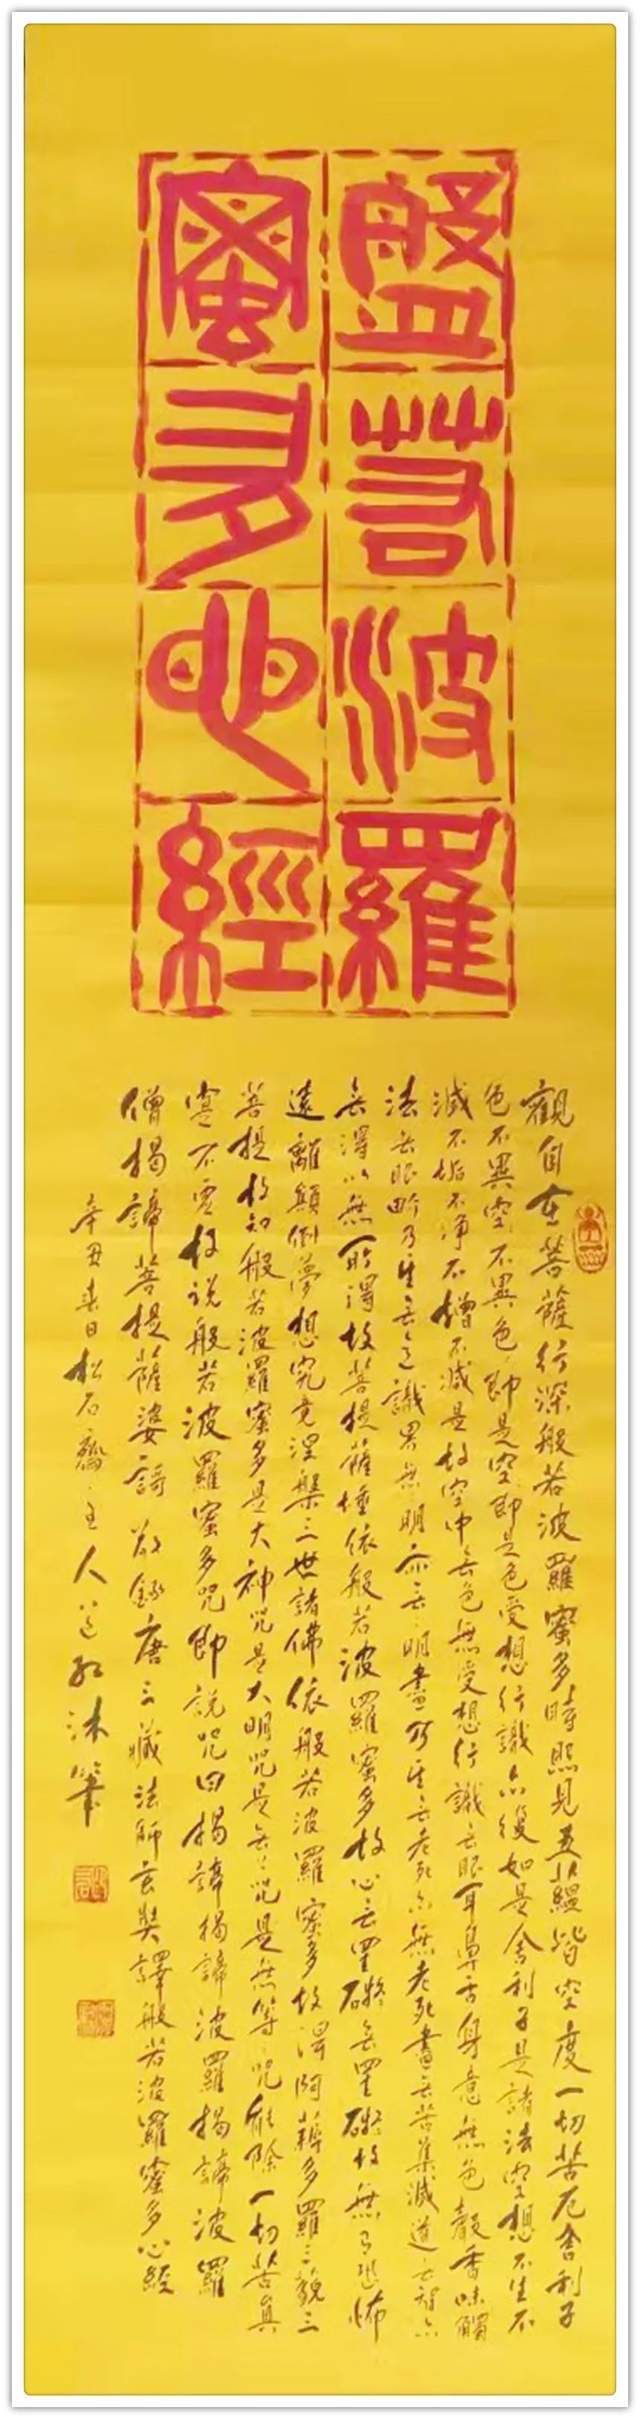 盤若波羅
蜜多心經
觀自在菩薩行深般若波羅蜜多時照見五蘊皆空度一切苦厄舍利子
色不異空々不異色々即是空々即是色受想行識亦復如是舍利子是諸法空想不生不
滅不垢不淨不增不減是故空中無色無受想行識無眼耳鼻舌身意無色聲香味觸
法無眼界乃至無意識界無無明亦無々明盡乃至無老死亦無老死盡無苦集滅道無智亦
無得以無所得故菩提薩埵依般若波羅蜜多故心無罣礙無罣礙故無有恐怖
遠離顛倒夢想究竟涅槃三世諸佛依般若波羅蜜多故得阿耨多羅三藐三
菩提故知般若波羅蜜多是大神咒是大明咒是無上咒是無等々咒能除一切苦真
實不虛故說般若波羅蜜多咒即說咒曰揭諦揭諦波羅揭諦波羅
僧揭諦菩提薩婆訶敬錄唐三藏法師玄奘譯般若波羅蜜多心經
辛丑春日松石齋主人沐筆